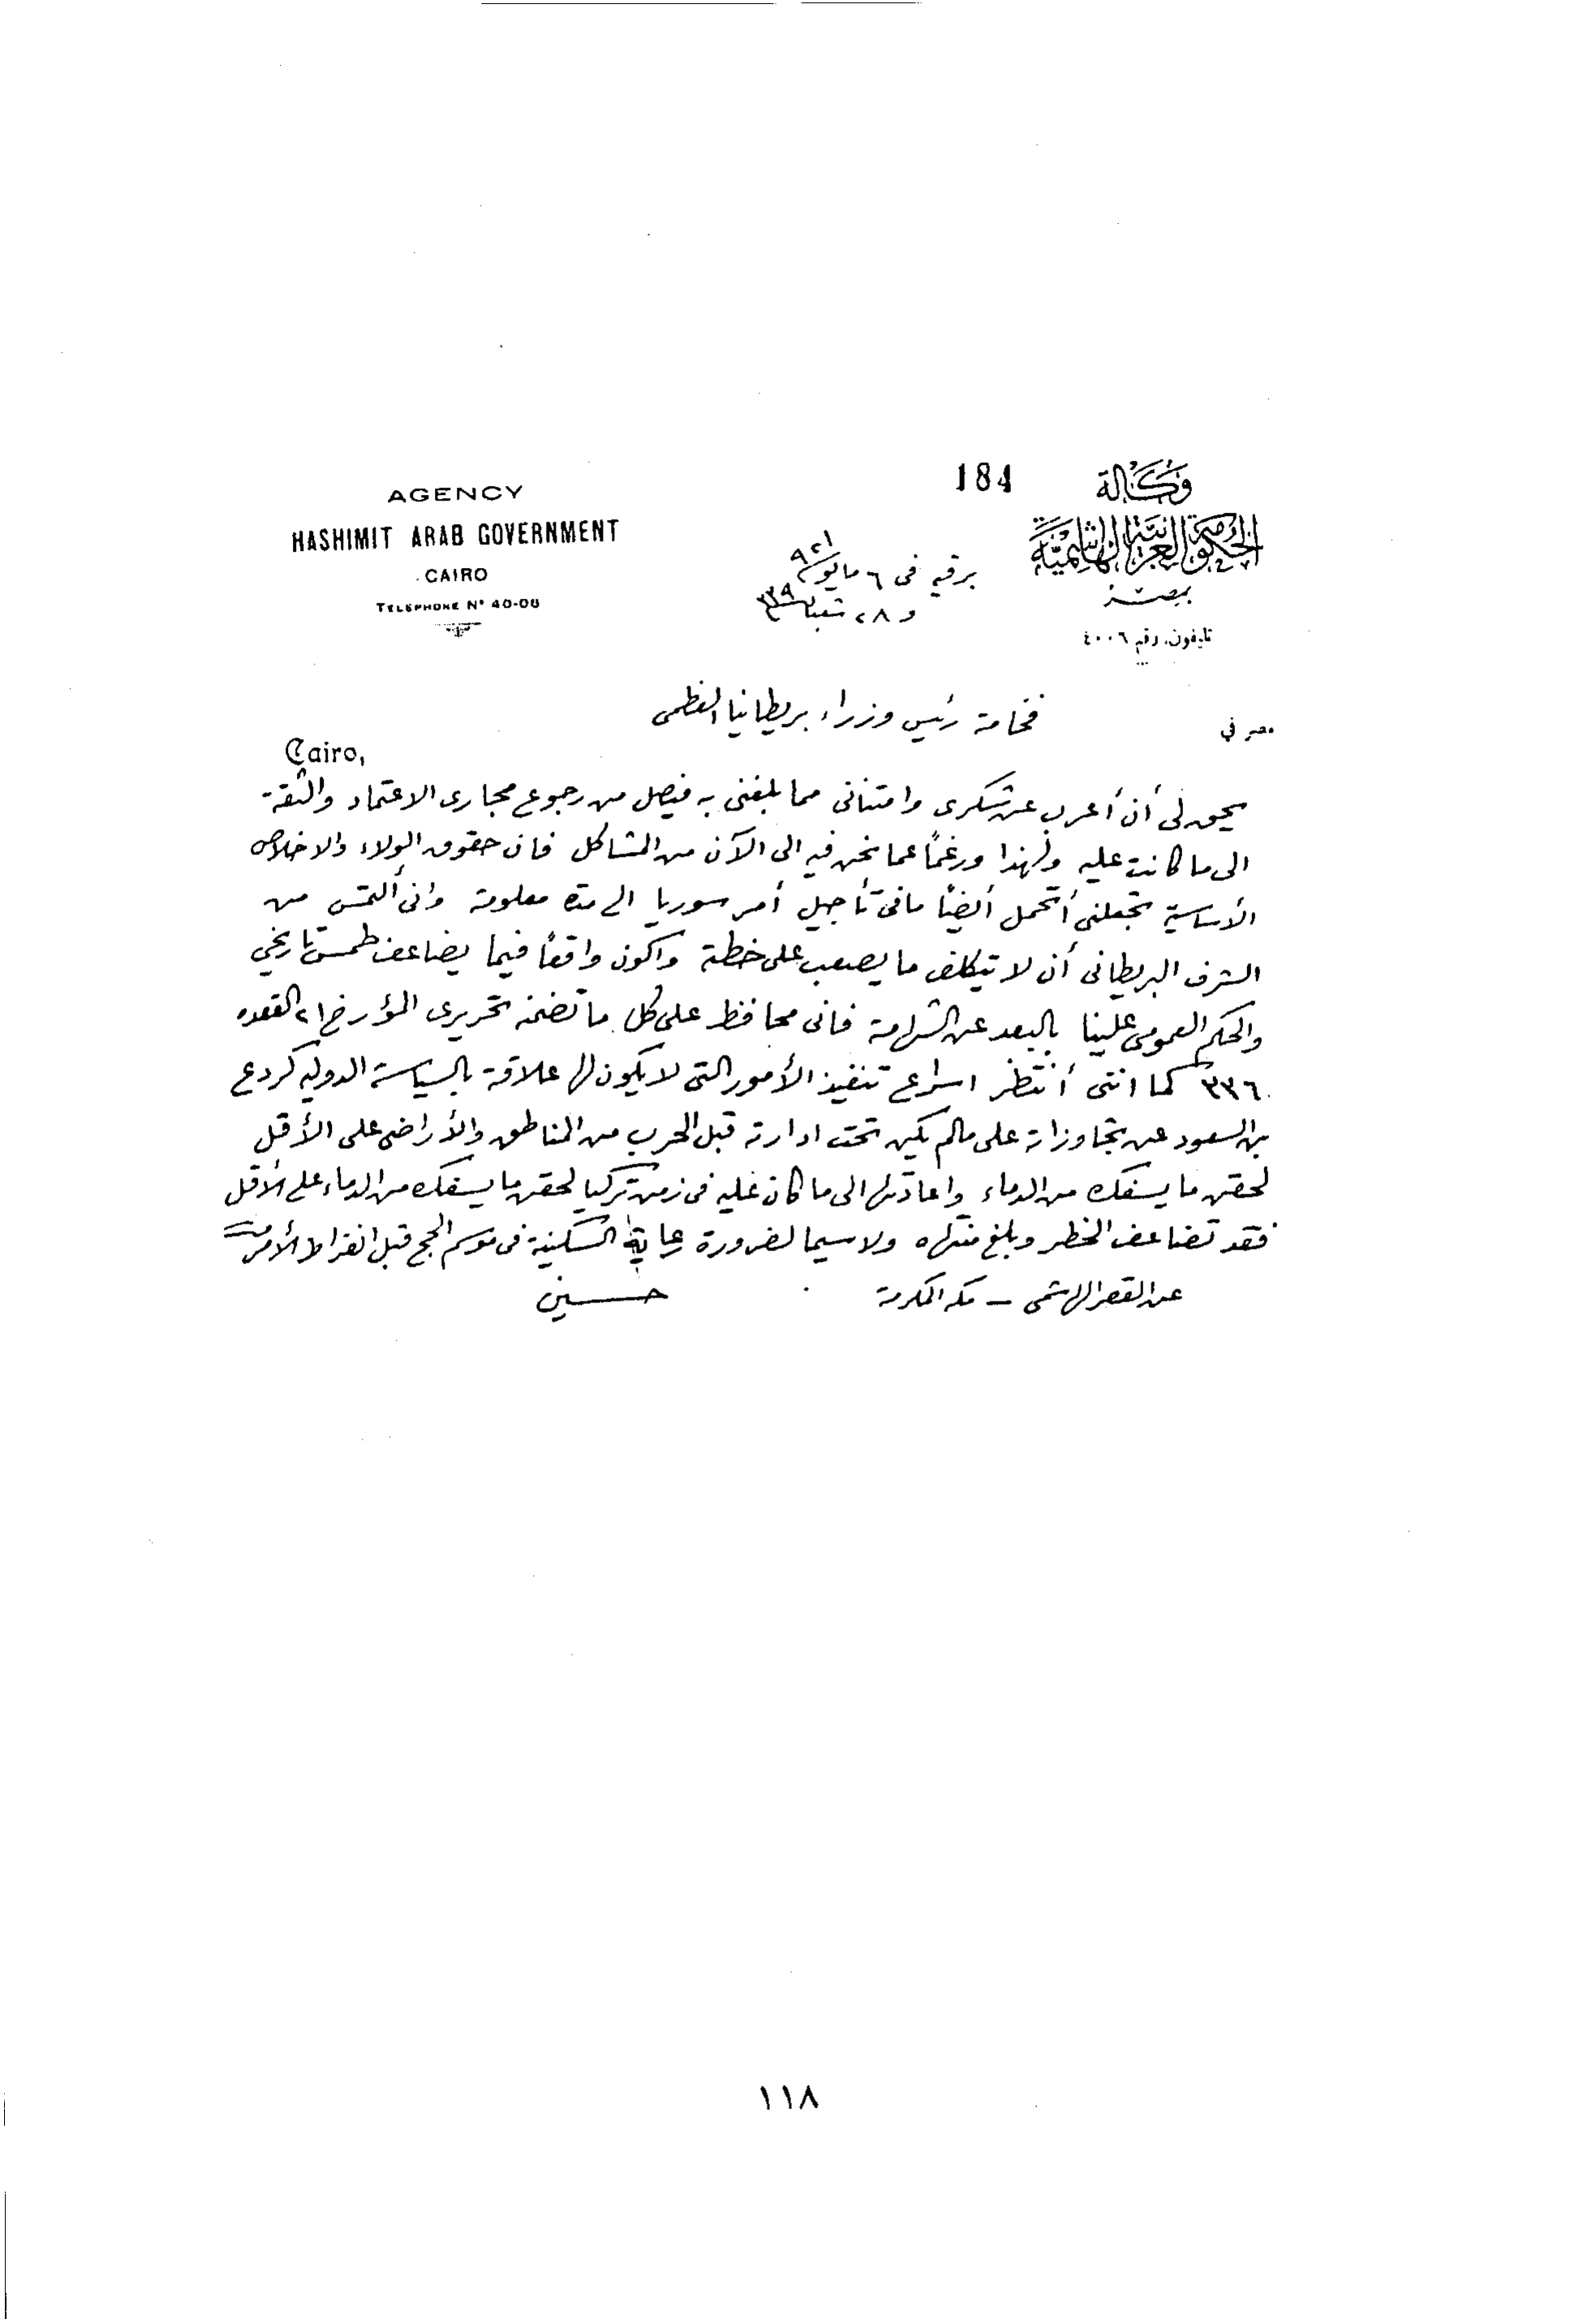 AGENCY
HASHIMIT ARAB GOVERNMENT
CAIRO
TELEPHONE Nº 40-06
184
وكالة
الحكومة العربية الهاشمية
بمصر
تليفون رقم ٤٠٠٦
برقيه فى ٦ مايو سنة ٩٢١
و ٢٨ شعبان سنة ٣٣٩
مصر في
Cairo,
فخامة رئيس وزراء بريطانيا العظمى
يحق لى أن أعرب عن شكرى وامتنانى مما بلغنى به فيصل من رجوع مجارى الاعتماد والثقة
الى ما كانت عليه ولهذا ورغمًا عما نحن فيه الى الآن من المشاكل فان حقوق الولاء والاخلاص
الأساسية تجعلنى أتحمل أيضًا ما فى تأجيل أمر سوريا الى مدة معلومة وانى ألتمس من
الشرف البريطانى أن لا تتكلف ما يصعب على خطة واكون واقعًا فيما يضاعف طمس تاريخي
والحكم العمومى علينا بالبعد عن الشهامة فانى محافظ على كل ما تضمنه تحريرى المؤرخ ٢١ القعده
٣٣٦ كما اننى أنتظر اسراع تنفيذ الأمور التى لا يكون لها علاقة بالسياسة الدوليه كردع
بن السعود عن تجاوزاته على مالم يكن تحت ادارته قبل الحرب من المناطق والأراضى على الأقل
لحقن ما يسفك من الدماء واعادتها الى ما كان عليه فى زمن تركيا لحقن ما يسفك من الدماء على الأقل
فقد تضاعف الخطر وبلغ منتهاه ولاسيما لضرورة رعاية السكينة فى موسم الحج قبل انفراط الأمر
عن القصر الهاشمى – مكه المكرمة
حسين
١١٨